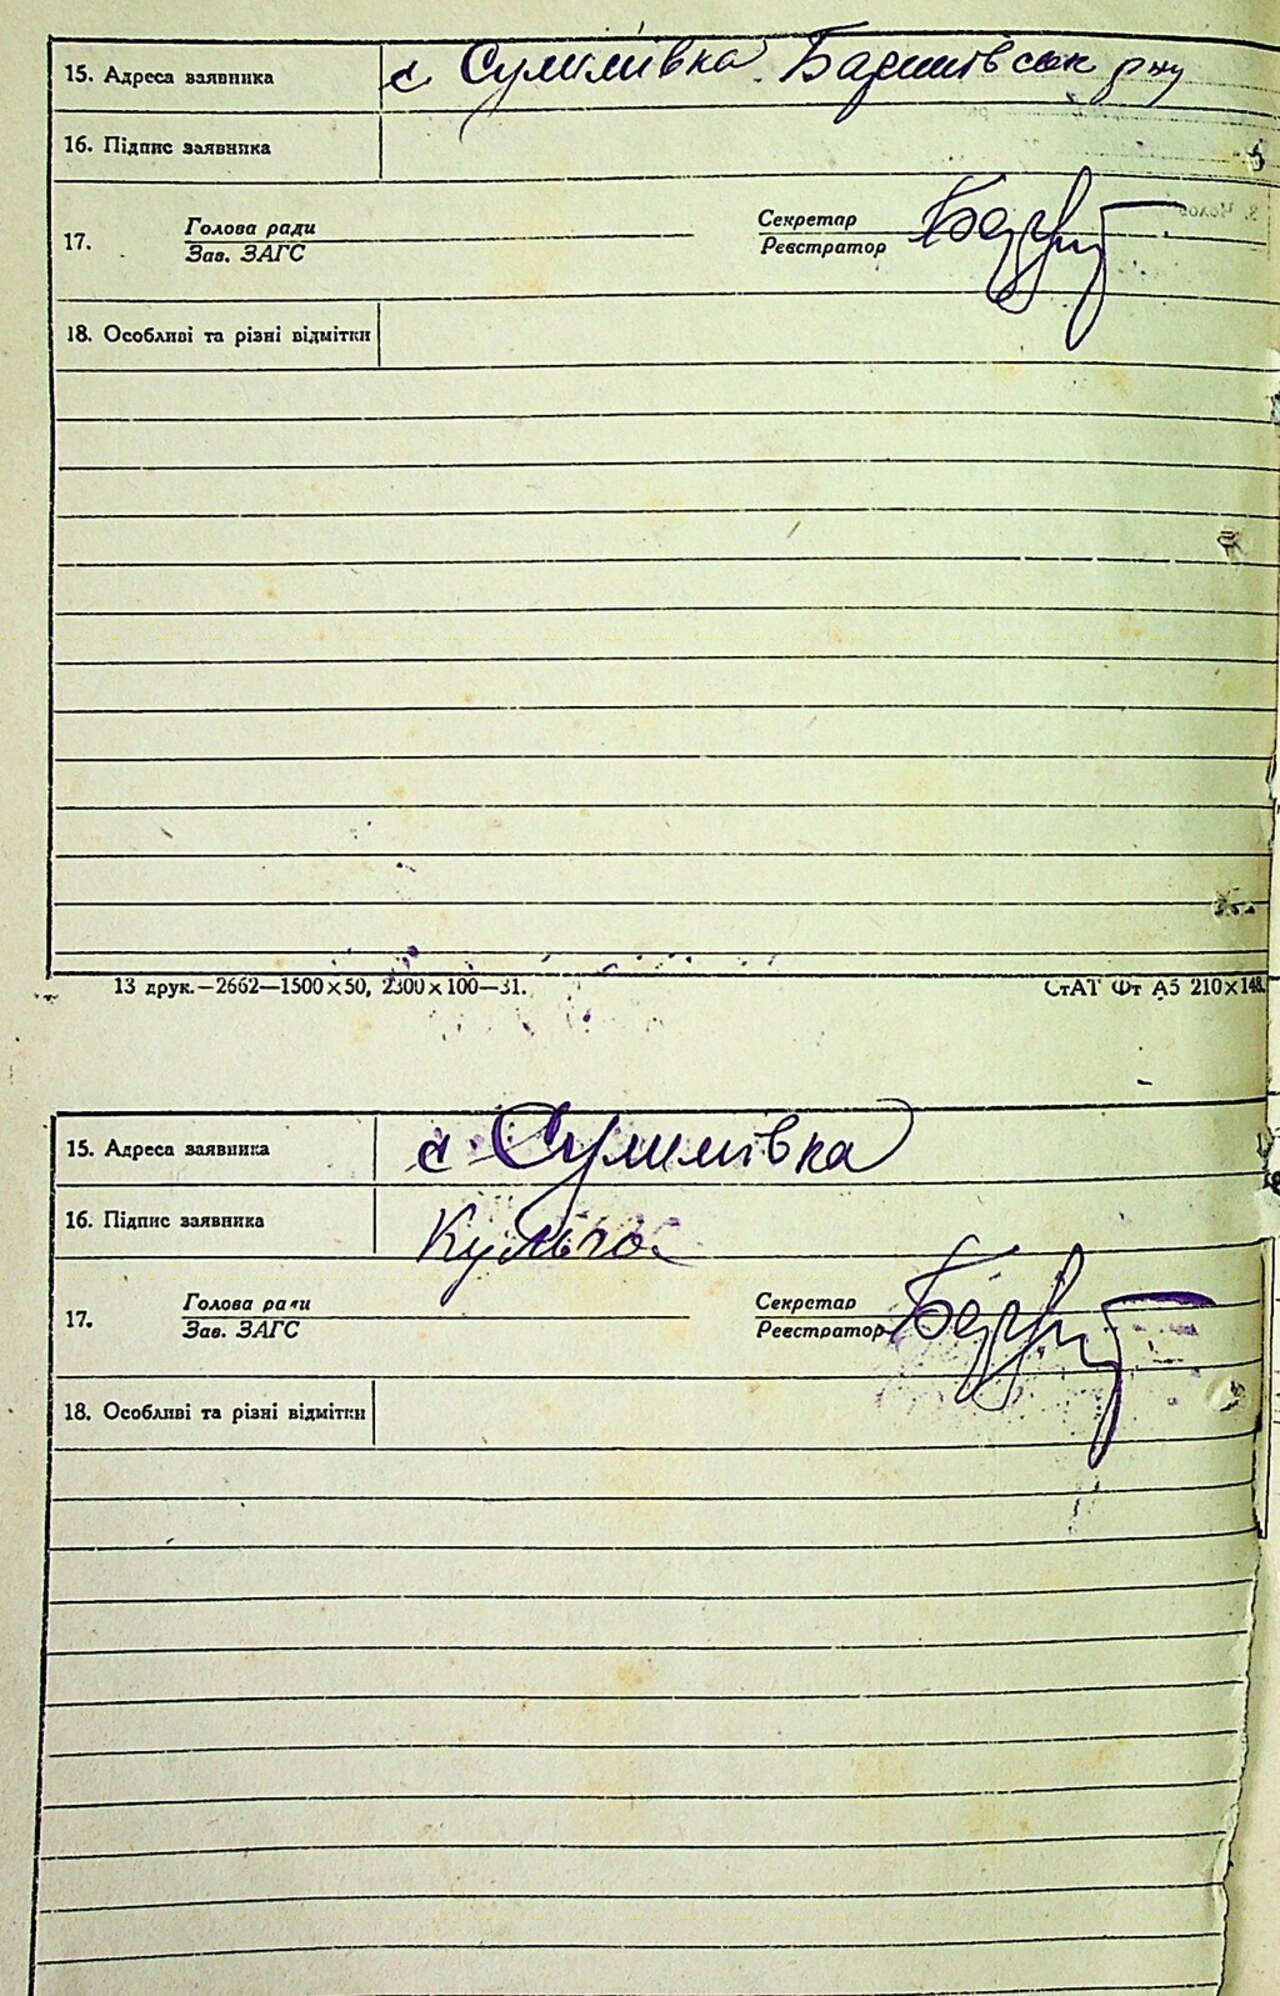 15. Адреса заявника с Сулимівка Баришівськ р-ну
16. Підпис заявника
17. Голова ради Секретар
Зав. ЗАГС Реєстратор
18. Особливі та різні відмітки
13 друк.—2662—1500×50, 2300×100—31. СтАТ Фт А5 210×148.
15. Адреса заявника с. Сулимівка
16. Підпис заявника
17. Голова ради Секретар
Зав. ЗАГС Реєстратор
18. Особливі та різні відмітки